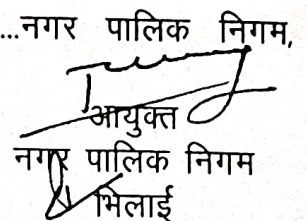 ...नगर पालिक निगम,
आयुक्त
नगर पालिक निगम
भिलाई